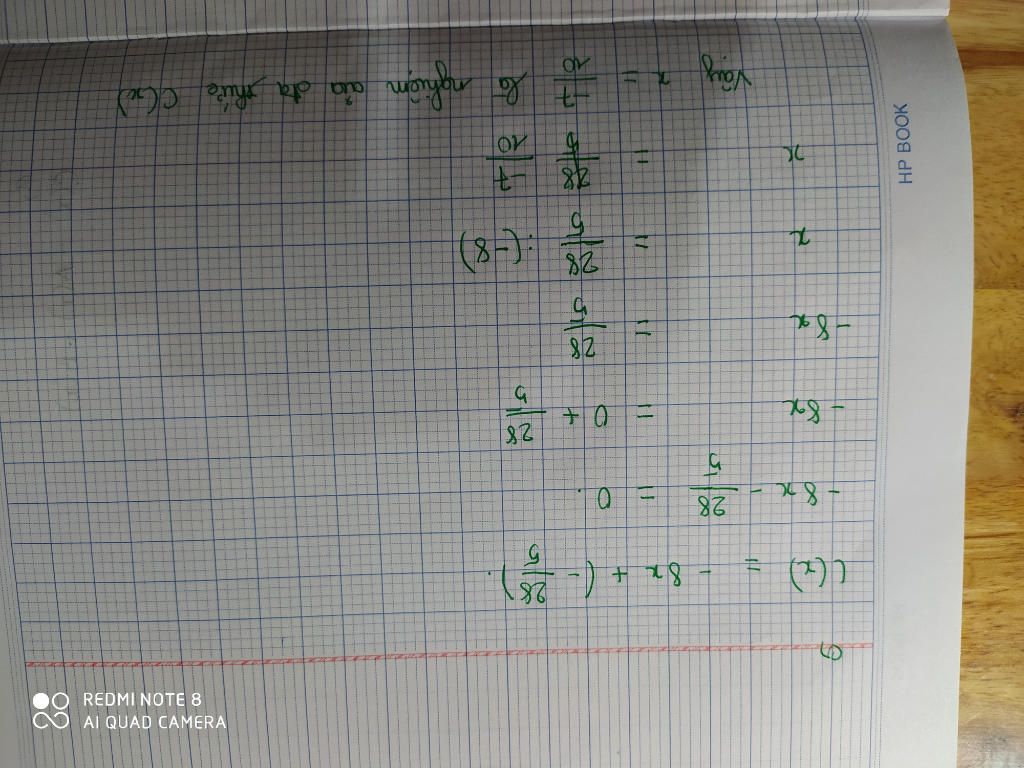 c)
C(x) = - 8x + (- 28/5).
- 8x - 28/5 = 0.
- 8x = 0 + 28/5
- 8x = 28/5
x = 28/5 : (-8)
x = 28/5 -7/10
Vậy x = -7/10 là nghiệm của đa thức C(x)
HP BOOK
REDMI NOTE 8
AI QUAD CAMERA